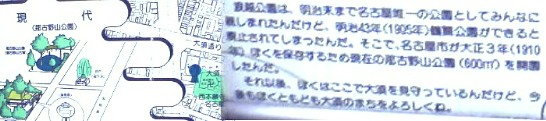 現代
(那古野山公園)
大須通り
浪越公園は、明治末まで名古屋唯一の公園としてみんなに
親しまれたんだけど、明治43年(1905年)鶴舞公園ができると
廃止されてしまったんだ。そこで、名古屋市が大正3年(1910
年)ぼくを保存するため現在の那古野山公園(600㎡)を開園
したんだ。
それ以後、ぼくはここで大須を見守っているんだけど、今
後もぼくともども大須のまちをよろしくね。